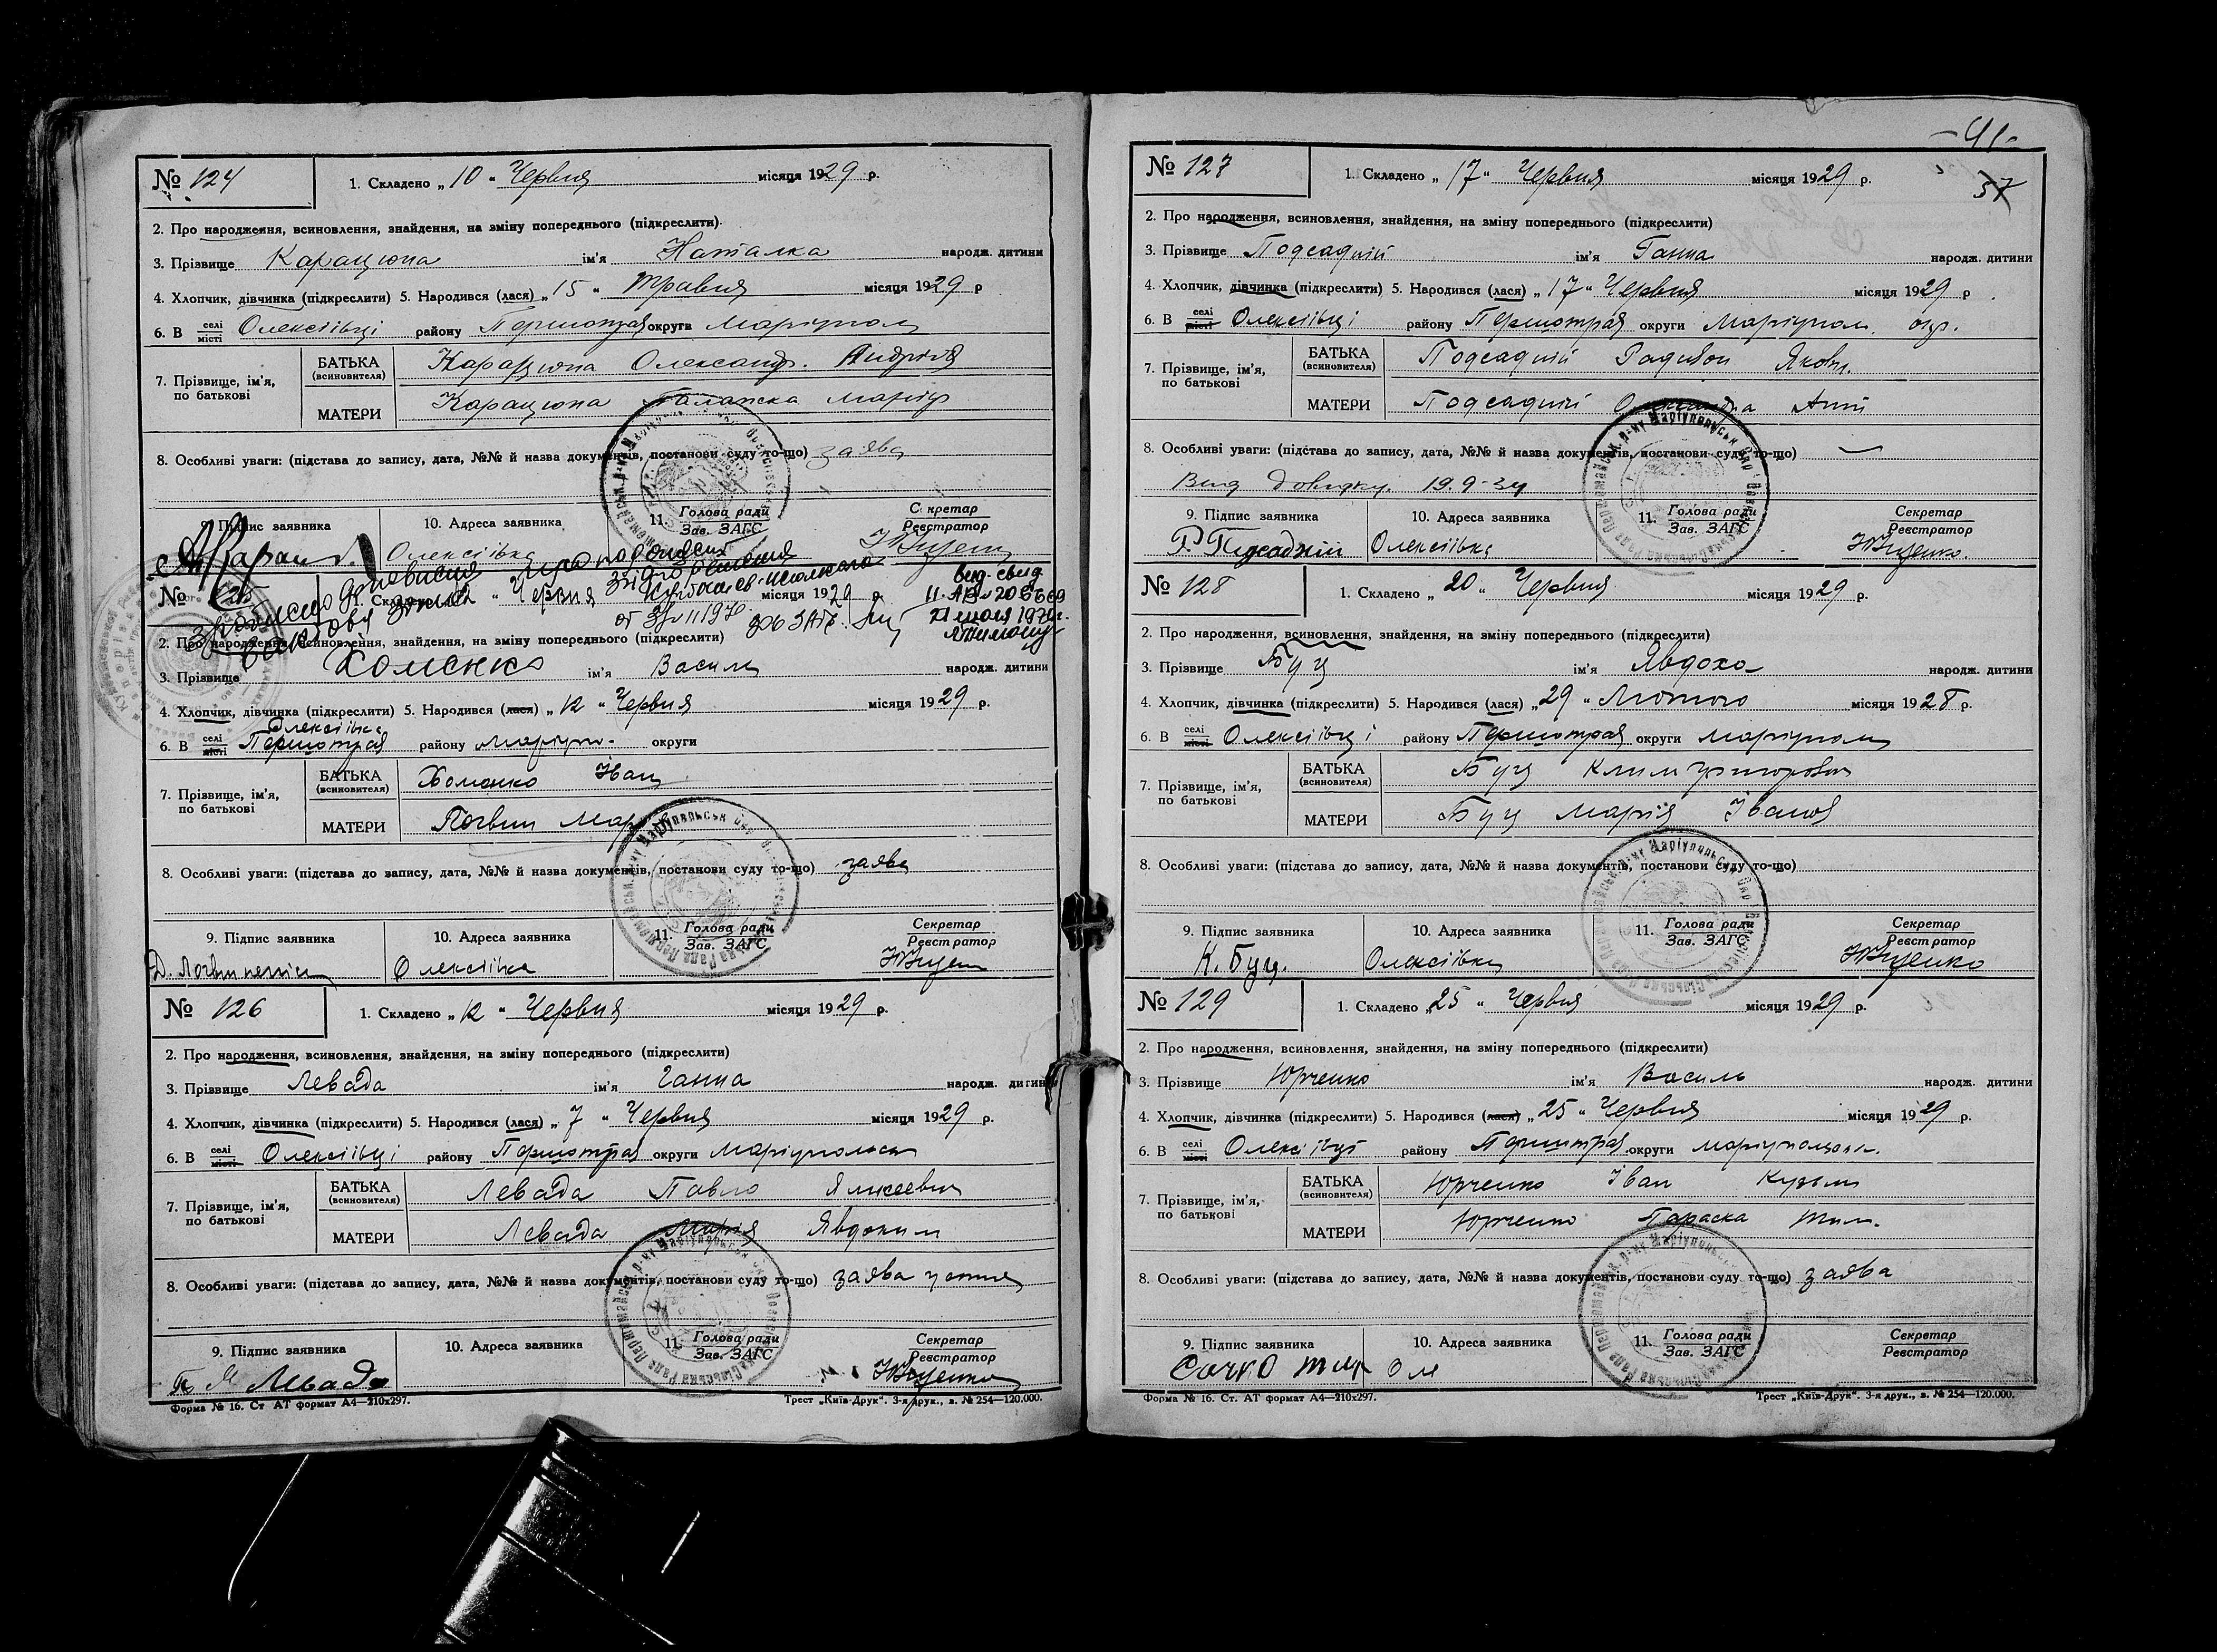 № 124
1. Складено „10“ Червня місяця 1929 р.
2. Про народження, всиновлення, знайдення, на зміну попереднього (підкреслити)
3. Прізвище Карацюпа ім'я Наталка народж. дитини
4. Хлопчик, дівчинка (підкреслити) 5. Народився (лася) „15“ Травня місяця 1929 р
6. В селі місті Олексіївці району Першотрав округи Маріупол
7. Прізвище, ім'я, по батькові
БАТЬКА (всиновителя) Карацюпа Олександ. Андрія
МАТЕРИ Карацюпа Палажка Марія
8. Особливі уваги: (підстава до запису, дата, №№ й назва документів, постанови суду то-що) заява
9. Підпис заявника
10. Адреса заявника
11. Голова ради Зав. ЗАГС
Секретар Реєстратор
Олексіївка
№ 125
1. Складено Червня місяця 1929 р.
Вид. свид.
21 июля 1970г.
2. Про народження, всиновлення, знайдення, на зміну попереднього (підкреслити)
3. Прізвище Хоменко ім'я Василь народж. дитини
4. Хлопчик, дівчинка (підкреслити) 5. Народився (лася) „12“ Червня місяця 1929 р.
6. В селі місті Олексіївка Першотрав району Маріуп. округи
7. Прізвище, ім'я, по батькові
БАТЬКА (всиновителя) Хоменко Іван
МАТЕРИ Логвин Марія
8. Особливі уваги: (підстава до запису, дата, №№ й назва документів, постанови суду то-що) заява
9. Підпис заявника
10. Адреса заявника
11. Голова ради Зав. ЗАГС
Секретар Реєстратор
Олексіївка
№ 126
1. Складено „12“ Червня місяця 1929 р.
2. Про народження, всиновлення, знайдення, на зміну попереднього (підкреслити)
3. Прізвище Левада ім'я Ганна народж. дитини
4. Хлопчик, дівчинка (підкреслити) 5. Народився (лася) „7“ Червня місяця 1929 р.
6. В селі місті Олексіївці району Першотрав округи Маріупольськ
7. Прізвище, ім'я, по батькові
БАТЬКА (всиновителя) Левада Павло
МАТЕРИ Левада Марія Явдоким
8. Особливі уваги: (підстава до запису, дата, №№ й назва документів, постанови суду то-що) заява устня
9. Підпис заявника
10. Адреса заявника
11. Голова ради Зав. ЗАГС
Секретар Реєстратор
Левада
Форма № 16. Ст АТ формат А4—210х297.
Трест „Київ-Друк“. 3-я друк., з. № 254—120.000.
-41-
37
№ 127
1. Складено „17“ Червня місяця 1929 р.
2. Про народження, всиновлення, знайдення, на зміну попереднього (підкреслити)
3. Прізвище Подсадній ім'я Ганна народж. дитини
4. Хлопчик, дівчинка (підкреслити) 5. Народився (лася) „17“ Червня місяця 1929 р
6. В селі місті Олексіївці району Першотрав округи Маріупол. окр.
7. Прізвище, ім'я, по батькові
БАТЬКА (всиновителя) Подсадній Радивон Яковл.
МАТЕРИ Подсадній Олександра Ант
8. Особливі уваги: (підстава до запису, дата, №№ й назва документів, постанови суду то-що) —
Вид довидку. 19.9-34
9. Підпис заявника
10. Адреса заявника
11. Голова ради Зав. ЗАГС
Секретар Реєстратор
Олексіївка
№ 128
1. Складено „20“ Червня місяця 1929 р.
2. Про народження, всиновлення, знайдення, на зміну попереднього (підкреслити)
3. Прізвище Буц ім'я Явдоха народж. дитини
4. Хлопчик, дівчинка (підкреслити) 5. Народився (лася) „29“ Лютого місяця 1928 р.
6. В селі місті Олексіївці району Першотрав округи Маріуполь
7. Прізвище, ім'я, по батькові
БАТЬКА (всиновителя) Буц Клим Григорович
МАТЕРИ Буц Марія Іванов
8. Особливі уваги: (підстава до запису, дата, №№ й назва документів, постанови суду то-що)
9. Підпис заявника
10. Адреса заявника
11. Голова ради Зав. ЗАГС
Секретар Реєстратор
К. Буц. Олексіївка
№ 129
1. Складено „25“ Червня місяця 1929 р.
2. Про народження, всиновлення, знайдення, на зміну попереднього (підкреслити)
3. Прізвище Юрченко ім'я Василь народж. дитини
4. Хлопчик, дівчинка (підкреслити) 5. Народився (лася) „25“ Червня місяця 1929 р.
6. В селі місті Олексіївці району Першотрав. округи
7. Прізвище, ім'я, по батькові
БАТЬКА (всиновителя) Юрченко Іван Кузьм
МАТЕРИ Юрченко Параска Тим.
8. Особливі уваги: (підстава до запису, дата, №№ й назва документів, постанови суду то-що) заява
9. Підпис заявника
10. Адреса заявника
11. Голова ради Зав. ЗАГС
Секретар Реєстратор
Сочко Ол
Форма № 16. Ст. АТ формат А4—210х297.
Трест „Київ-Друк“. 3-я друк., з. № 254—120.000.